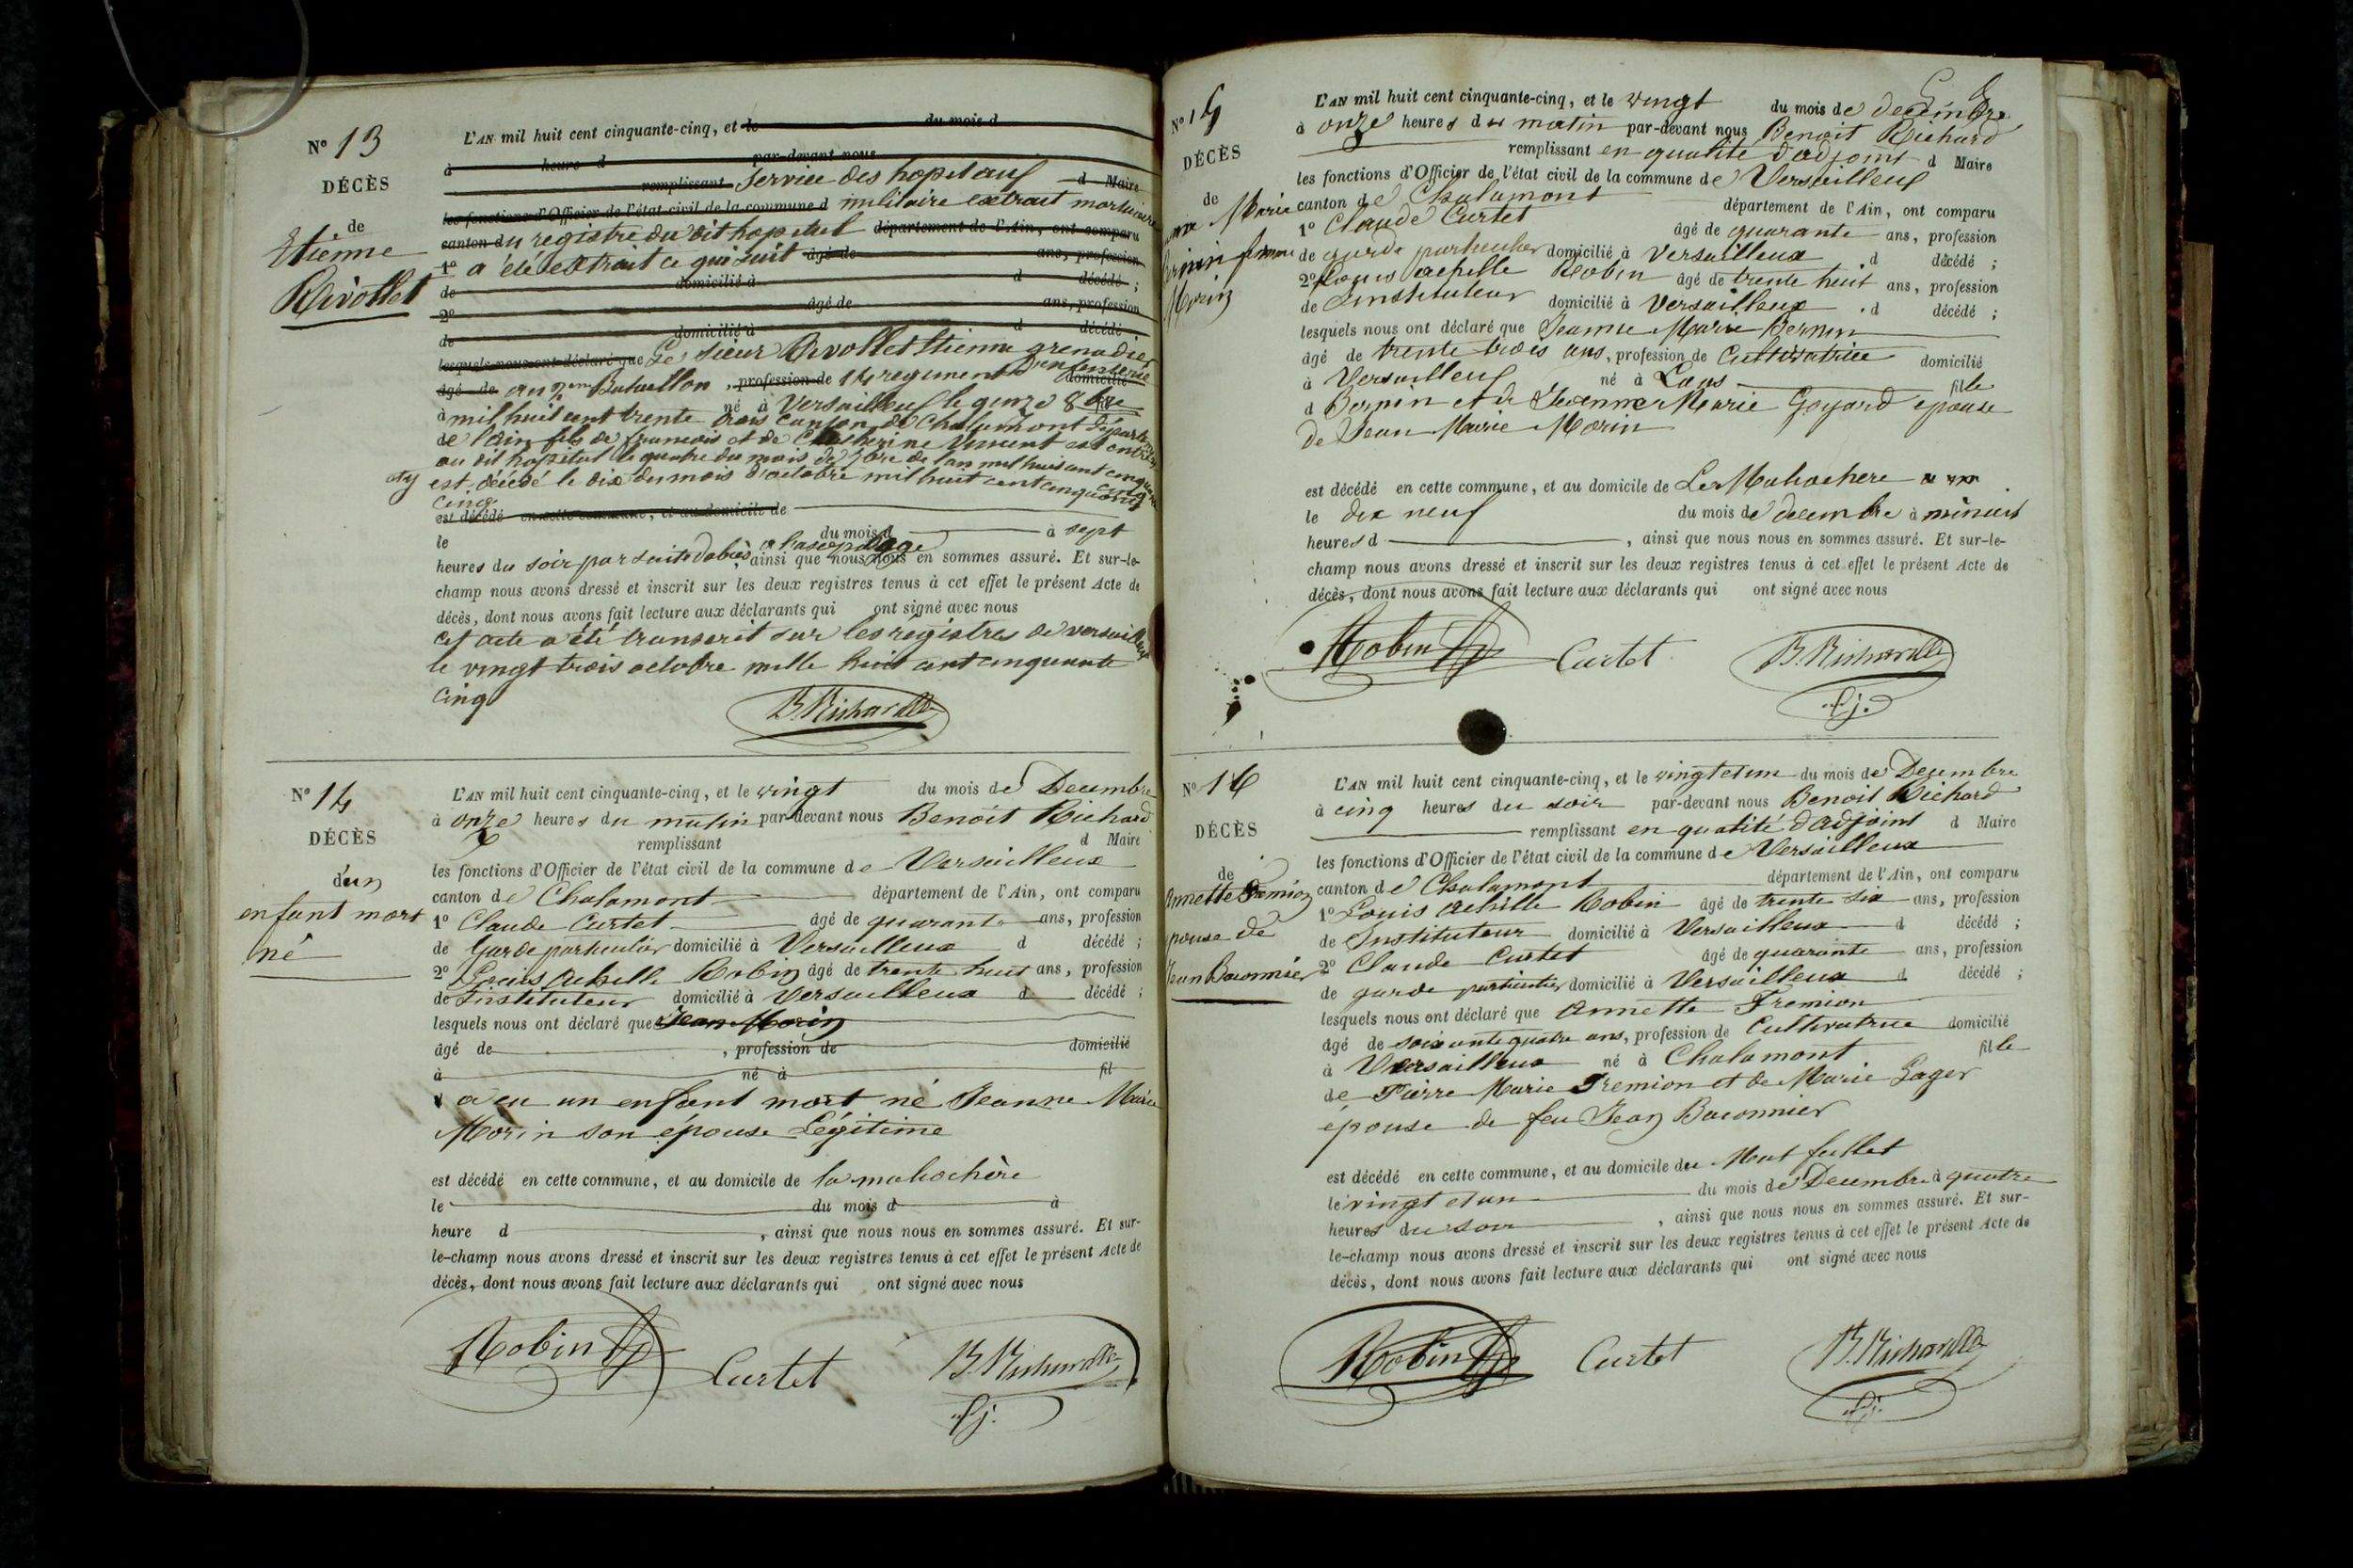 N° 13
DÉCÈS
de
Etienne
Rivollet
L'AN mil huit cent cinquante-cinq, et le du mois d
à heure d par-devant nous
remplissant Service des hopitauf d Maire
les fonctions d'Officier de l'état civil de la commune d militaire extrait mortuaire
canton du registre du dit hopital département de l'Ain, ont comparu
1° a été extrait ce qui suit âgé de ans, profession
de domicilié à d décédé ;
2° âgé de ans, profession
de domicilié à d décédé
lesquels nous ont déclaré que Le sieur Rivollet Etienne grenadier
âgé de au Bataillon , profession de 14 regiment d'infanterie domicilié
à mil huit cent trente trois né à Versailleuf le quinze 8bre fil canton de Chalamont départemen
de l'ain fils de francois et de Catherine est entré
au dit hopital le quatre du mois de 7bre de l'an mil huit cent cinquante cinq
et y est décédé le dix du mois d'octobre mil huit cent cinquante
cinq
est décédé en cette commune, et au domicile de
le du mois d à sept
heures du soir par suite ainsi que nous nous en sommes assuré. Et sur-le-
champ nous avons dressé et inscrit sur les deux registres tenus à cet effet le présent Acte de
décès, dont nous avons fait lecture aux déclarants qui ont signé avec nous
cet acte a été transcrit sur les registres de versailleux
le vingt trois octobre mille huit cent cinquante
cinq
B. Richard
N° 14
DÉCÈS
d'un
enfant mort
né
L'AN mil huit cent cinquante-cinq, et le vingt du mois de Decembre
à onze heures du matin par-devant nous Benoit Richard
remplissant d Maire
les fonctions d'Officier de l'état civil de la commune de Versailleux
canton de Chalamont département de l'Ain, ont comparu
1° Claude Curtet âgé de quarante ans, profession
de Garde particulier domicilié à Versailleux d décédé ;
2° Louis Achille Robin âgé de trente huit ans, profession
de Instituteur domicilié à Versailleux d décédé ;
lesquels nous ont déclaré que Jean Morin
âgé de , profession de domicilié
à né à fil
d a eu un enfant mort né Jeanne Marie
Morin son épouse Légitime
est décédé en cette commune, et au domicile de la mahochère
le du mois d à
heure d , ainsi que nous nous en sommes assuré. Et sur-
le-champ nous avons dressé et inscrit sur les deux registres tenus à cet effet le présent Acte de
décès, dont nous avons fait lecture aux déclarants qui ont signé avec nous
Robin Curtet B. Richard
adj.
N° 15
DÉCÈS
de
Marie
femme
Morin
L'AN mil huit cent cinquante-cinq, et le vingt du mois de decembre
à onze heures du matin par-devant nous Benoit Richard
remplissant en qualité d'adjoint d Maire
les fonctions d'Officier de l'état civil de la commune de Versailleuf
canton de Chalamont département de l'Ain, ont comparu
1° Claude Curtet âgé de quarante ans, profession
de garde particulier domicilié à Versailleux d décédé ;
2° Louis achille Robin âgé de trente huit ans, profession
de Instituteur domicilié à Versailleux d décédé ;
lesquels nous ont déclaré que Jeanne Marie Bernin
âgé de trente trois ans, profession de Cultivatrice domicilié
à Versailleuf né à Lans fille
d Bernin et de Jeanne Marie Goyard epouse
de Jean Marie Morin
est décédé en cette commune, et au domicile de La Mahochere
le dix neuf du mois de decembre à minuit
heures d , ainsi que nous nous en sommes assuré. Et sur-le-
champ nous avons dressé et inscrit sur les deux registres tenus à cet effet le présent Acte de
décès, dont nous avons fait lecture aux déclarants qui ont signé avec nous
Robin Curtet B. Richard
adj.
N° 16
DÉCÈS
de
Annette Fremion
pouse de
Jean Baconnier
L'AN mil huit cent cinquante-cinq, et le vingt et un du mois de Decembre
à cinq heures du soir par-devant nous Benoit Richard
remplissant en qualité d'adjoint d Maire
les fonctions d'Officier de l'état civil de la commune de Versailleux
canton de Chalamont département de l'Ain, ont comparu
1° Louis Achille Robin âgé de trente six ans, profession
de Instituteur domicilié à Versailleux d décédé ;
2° Claude Curtet âgé de quarante ans, profession
de garde particulier domicilié à Versailleux d décédé ;
lesquels nous ont déclaré que Annette Fremion
âgé de soixante quatre ans, profession de Cultivatrice domicilié
à Versailleux né à Chalamont fille
de Pierre Marie Fremion et de Marie Gager
épouse de feu Jean Baconnier
est décédé en cette commune, et au domicile du Mont fullet
le vingt et un du mois de Decembre à quatre
heures du soir , ainsi que nous nous en sommes assuré. Et sur-
le-champ nous avons dressé et inscrit sur les deux registres tenus à cet effet le présent Acte de
décès, dont nous avons fait lecture aux déclarants qui ont signé avec nous
Robin Curtet B. Richard
adj.